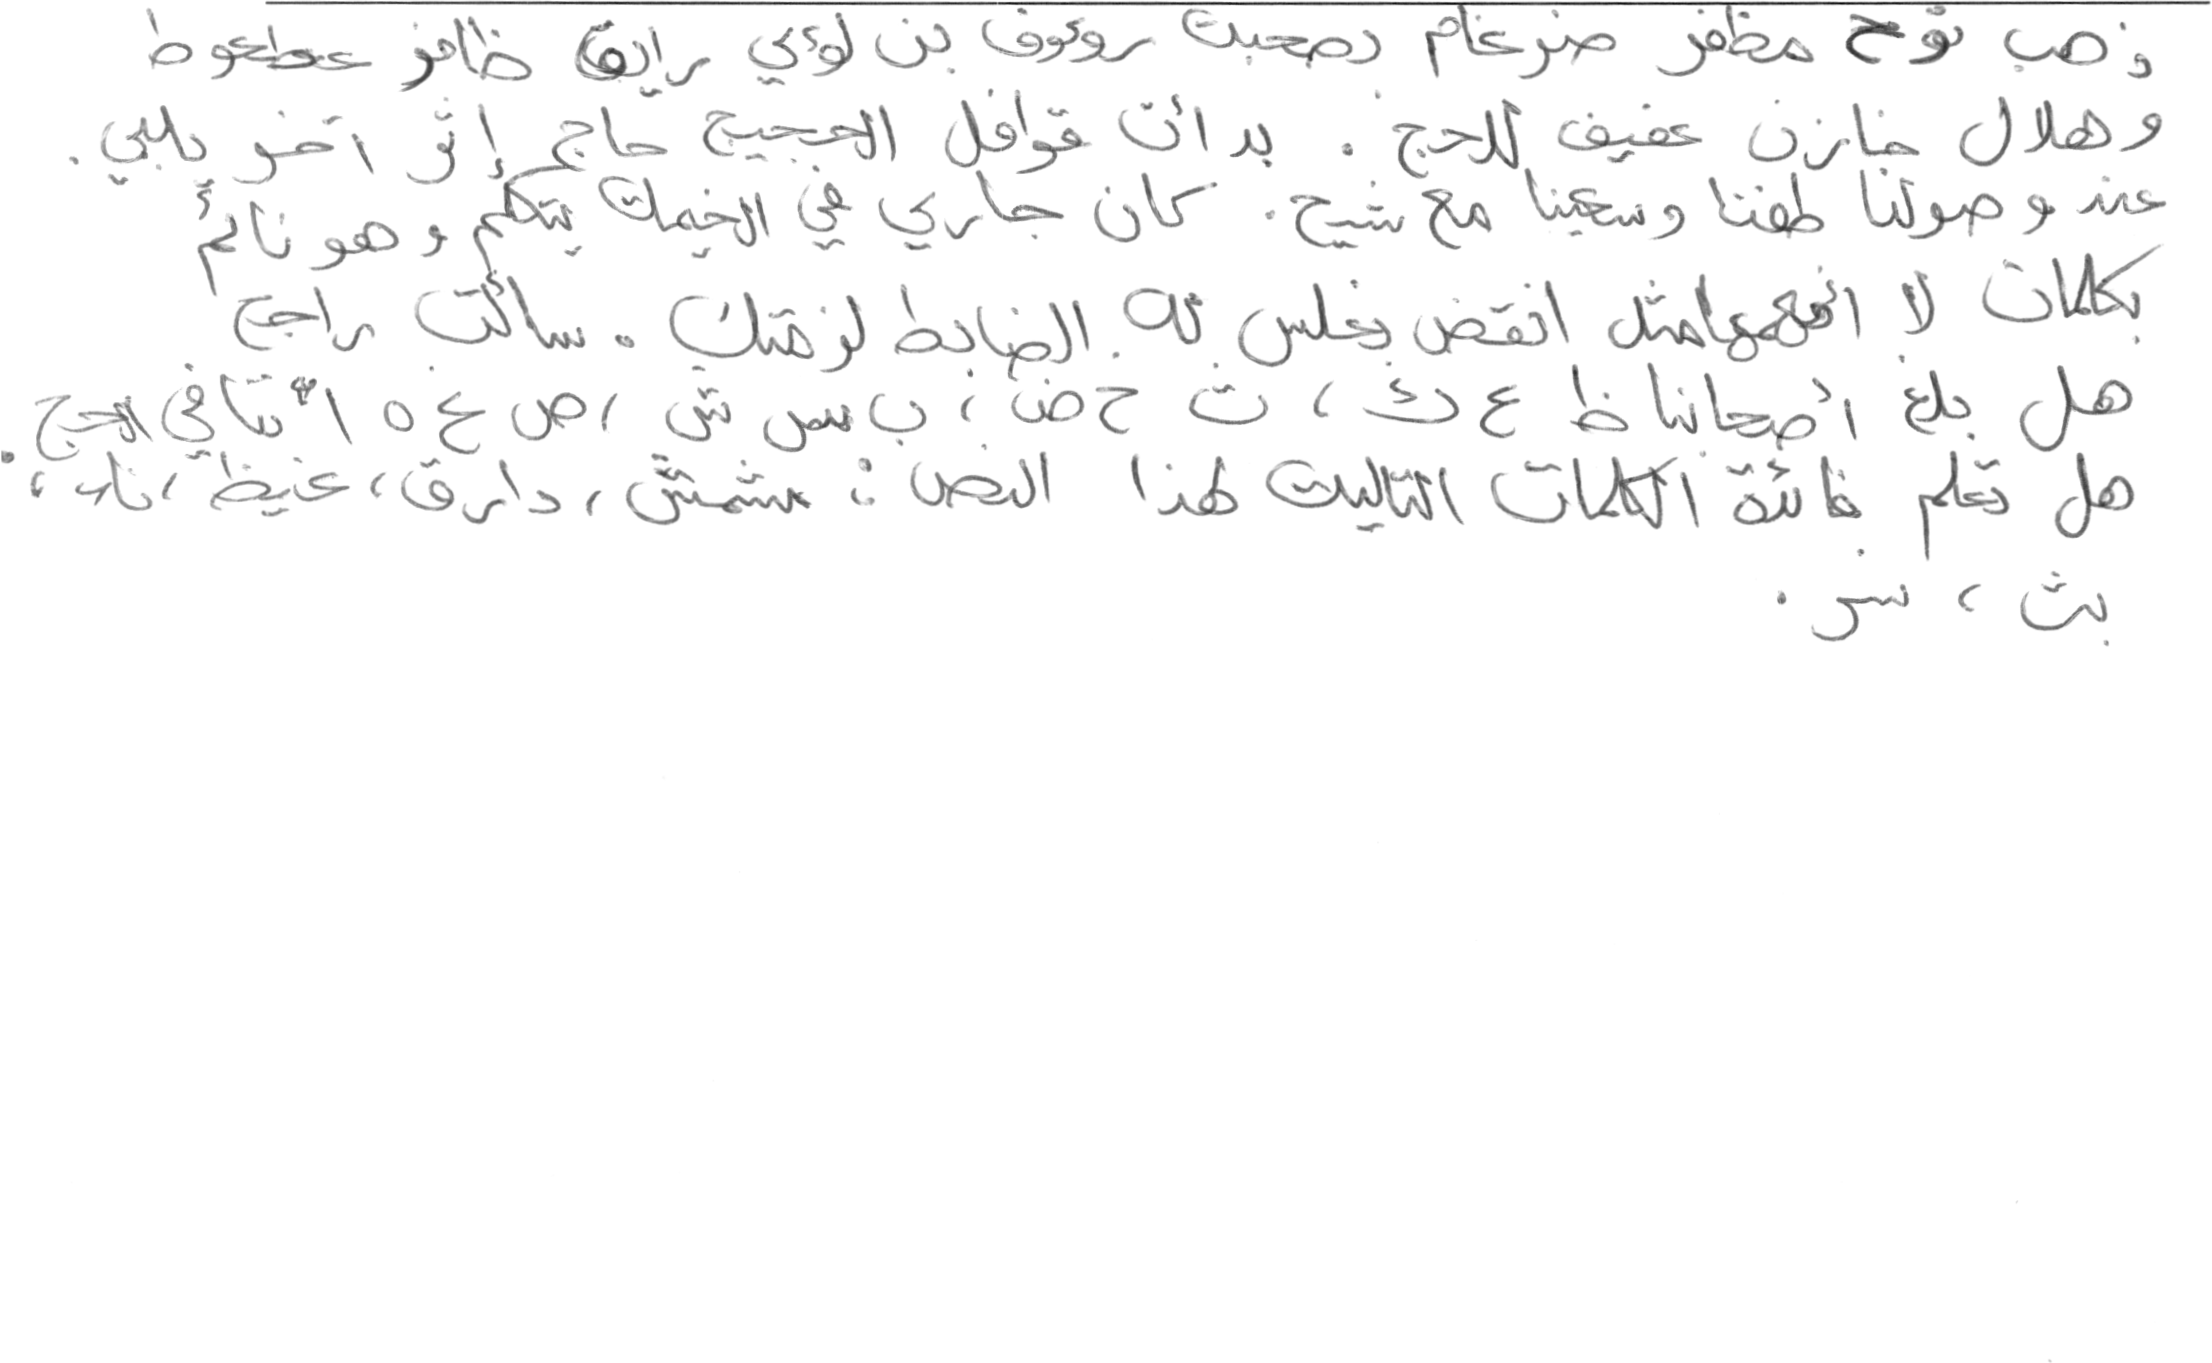 ذهب نوح مظفر ضرغام بصحبة رءوف بن لؤي رايق ظافر عطعوط
وهلال خازن عفيف للحج . بدأت قوافل الحجيج حاج إثر آخر يلبي .
عند وصولنا طفنا وسعينا مع شيخ . كان جاري في الخيمة يتكلم وهو نائم
بكلمات لا أفهمها مثل انقض بغلس له الضابط لزمتك . سألت راجح
هل بلغ أصحابنا ظ ع ك ، ث خ ض ، ب س ش ، ص غ ه أ ثنا في الحج .
هل تعلم فائدة الكلمات التالية لهذا النص : مشمش ، دارق ، غيظ ، ناب ،
بث ، نسر .